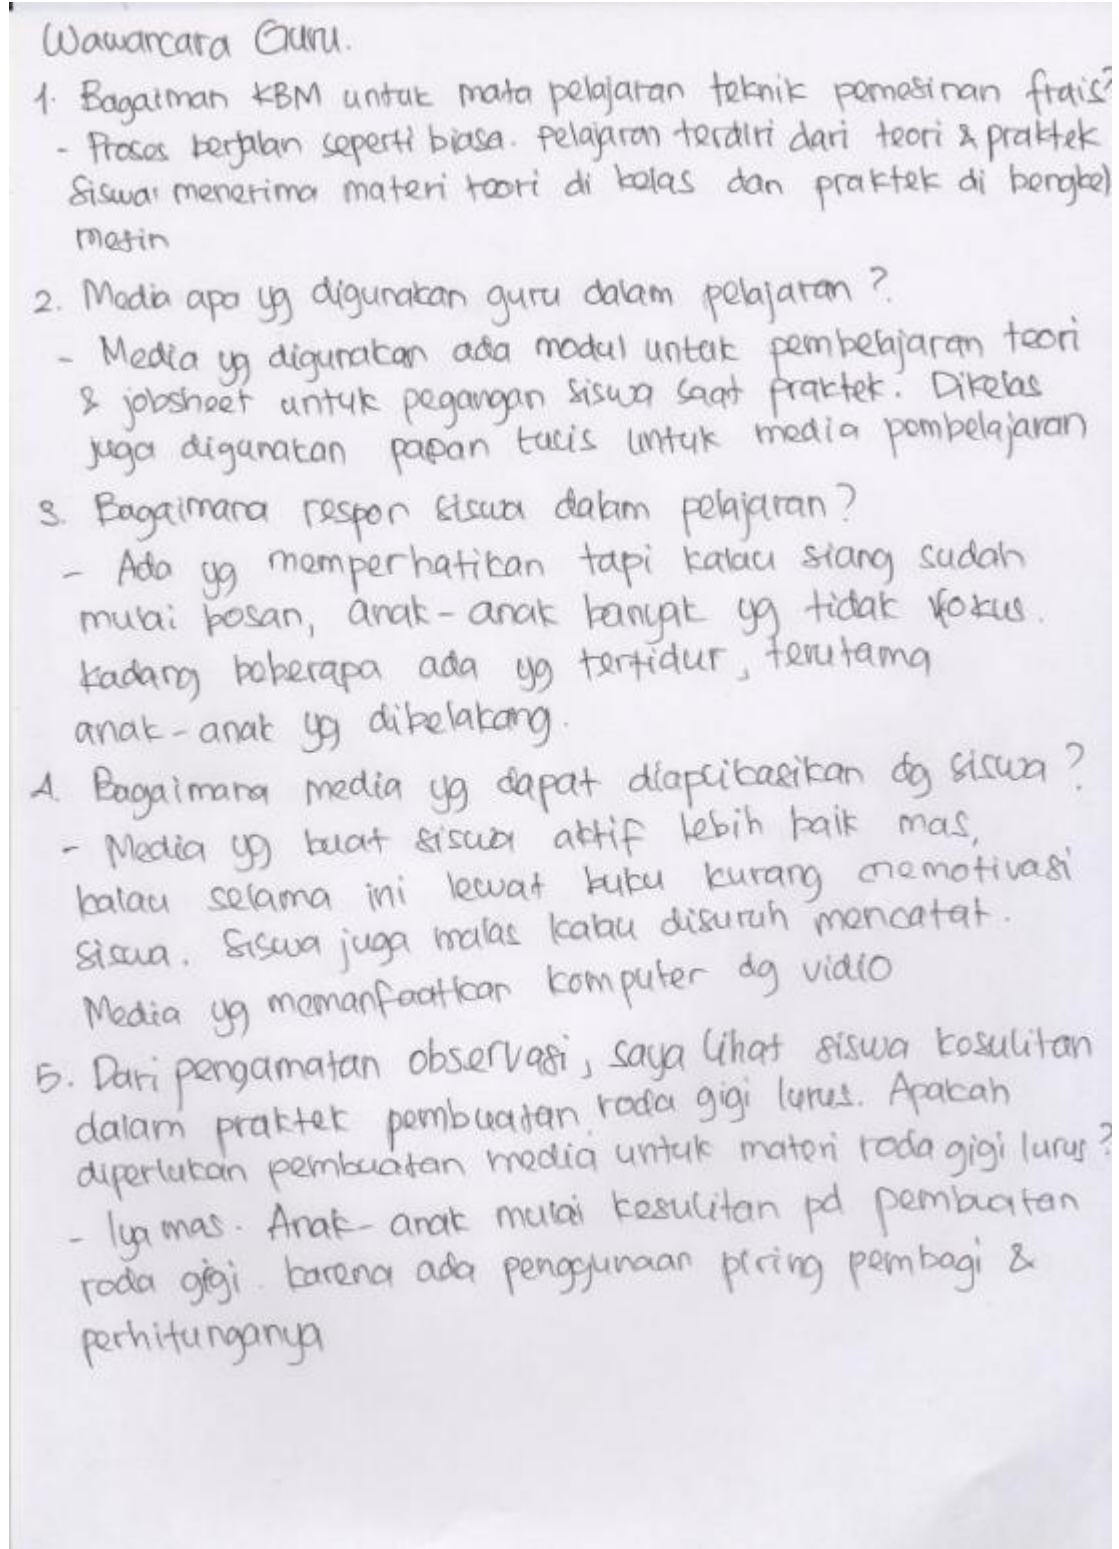 Wawancara Guru.
1. Bagaiman KBM untuk mata pelajaran teknik pemesinan frais?
- Proses berjalan seperti biasa. Pelajaran terdiri dari teori & praktek
Siswa menerima materi teori di kelas dan praktek di bengkel
mesin
2. Media apa yg digunakan guru dalam pelajaran?
- Media yg digunakan ada modul untuk pembelajaran teori
& jobsheet untuk pegangan siswa saat praktek. Dikelas
juga digunakan papan tulis untuk media pembelajaran
3. Bagaimana respon siswa dalam pelajaran?
- Ada yg memperhatikan tapi kalau siang sudah
mulai bosan, anak-anak banyak yg tidak fokus.
kadang beberapa ada yg tertidur, terutama
anak-anak yg dibelakang.
4. Bagaimana media yg dapat diaplikasikan dg siswa?
- Media yg buat siswa aktif lebih baik mas,
kalau selama ini lewat buku kurang memotivasi
siswa. Siswa juga malas kalau disuruh mencatat.
Media yg memanfaatkan komputer dg vidio
5. Dari pengamatan observasi, saya lihat siswa kesulitan
dalam praktek pembuatan roda gigi lurus. Apakah
diperlukan pembuatan media untuk materi roda gigi lurus?
- Iya mas. Anak-anak mulai kesulitan pd pembuatan
roda gigi. karena ada penggunaan piring pembagi &
perhitunganya